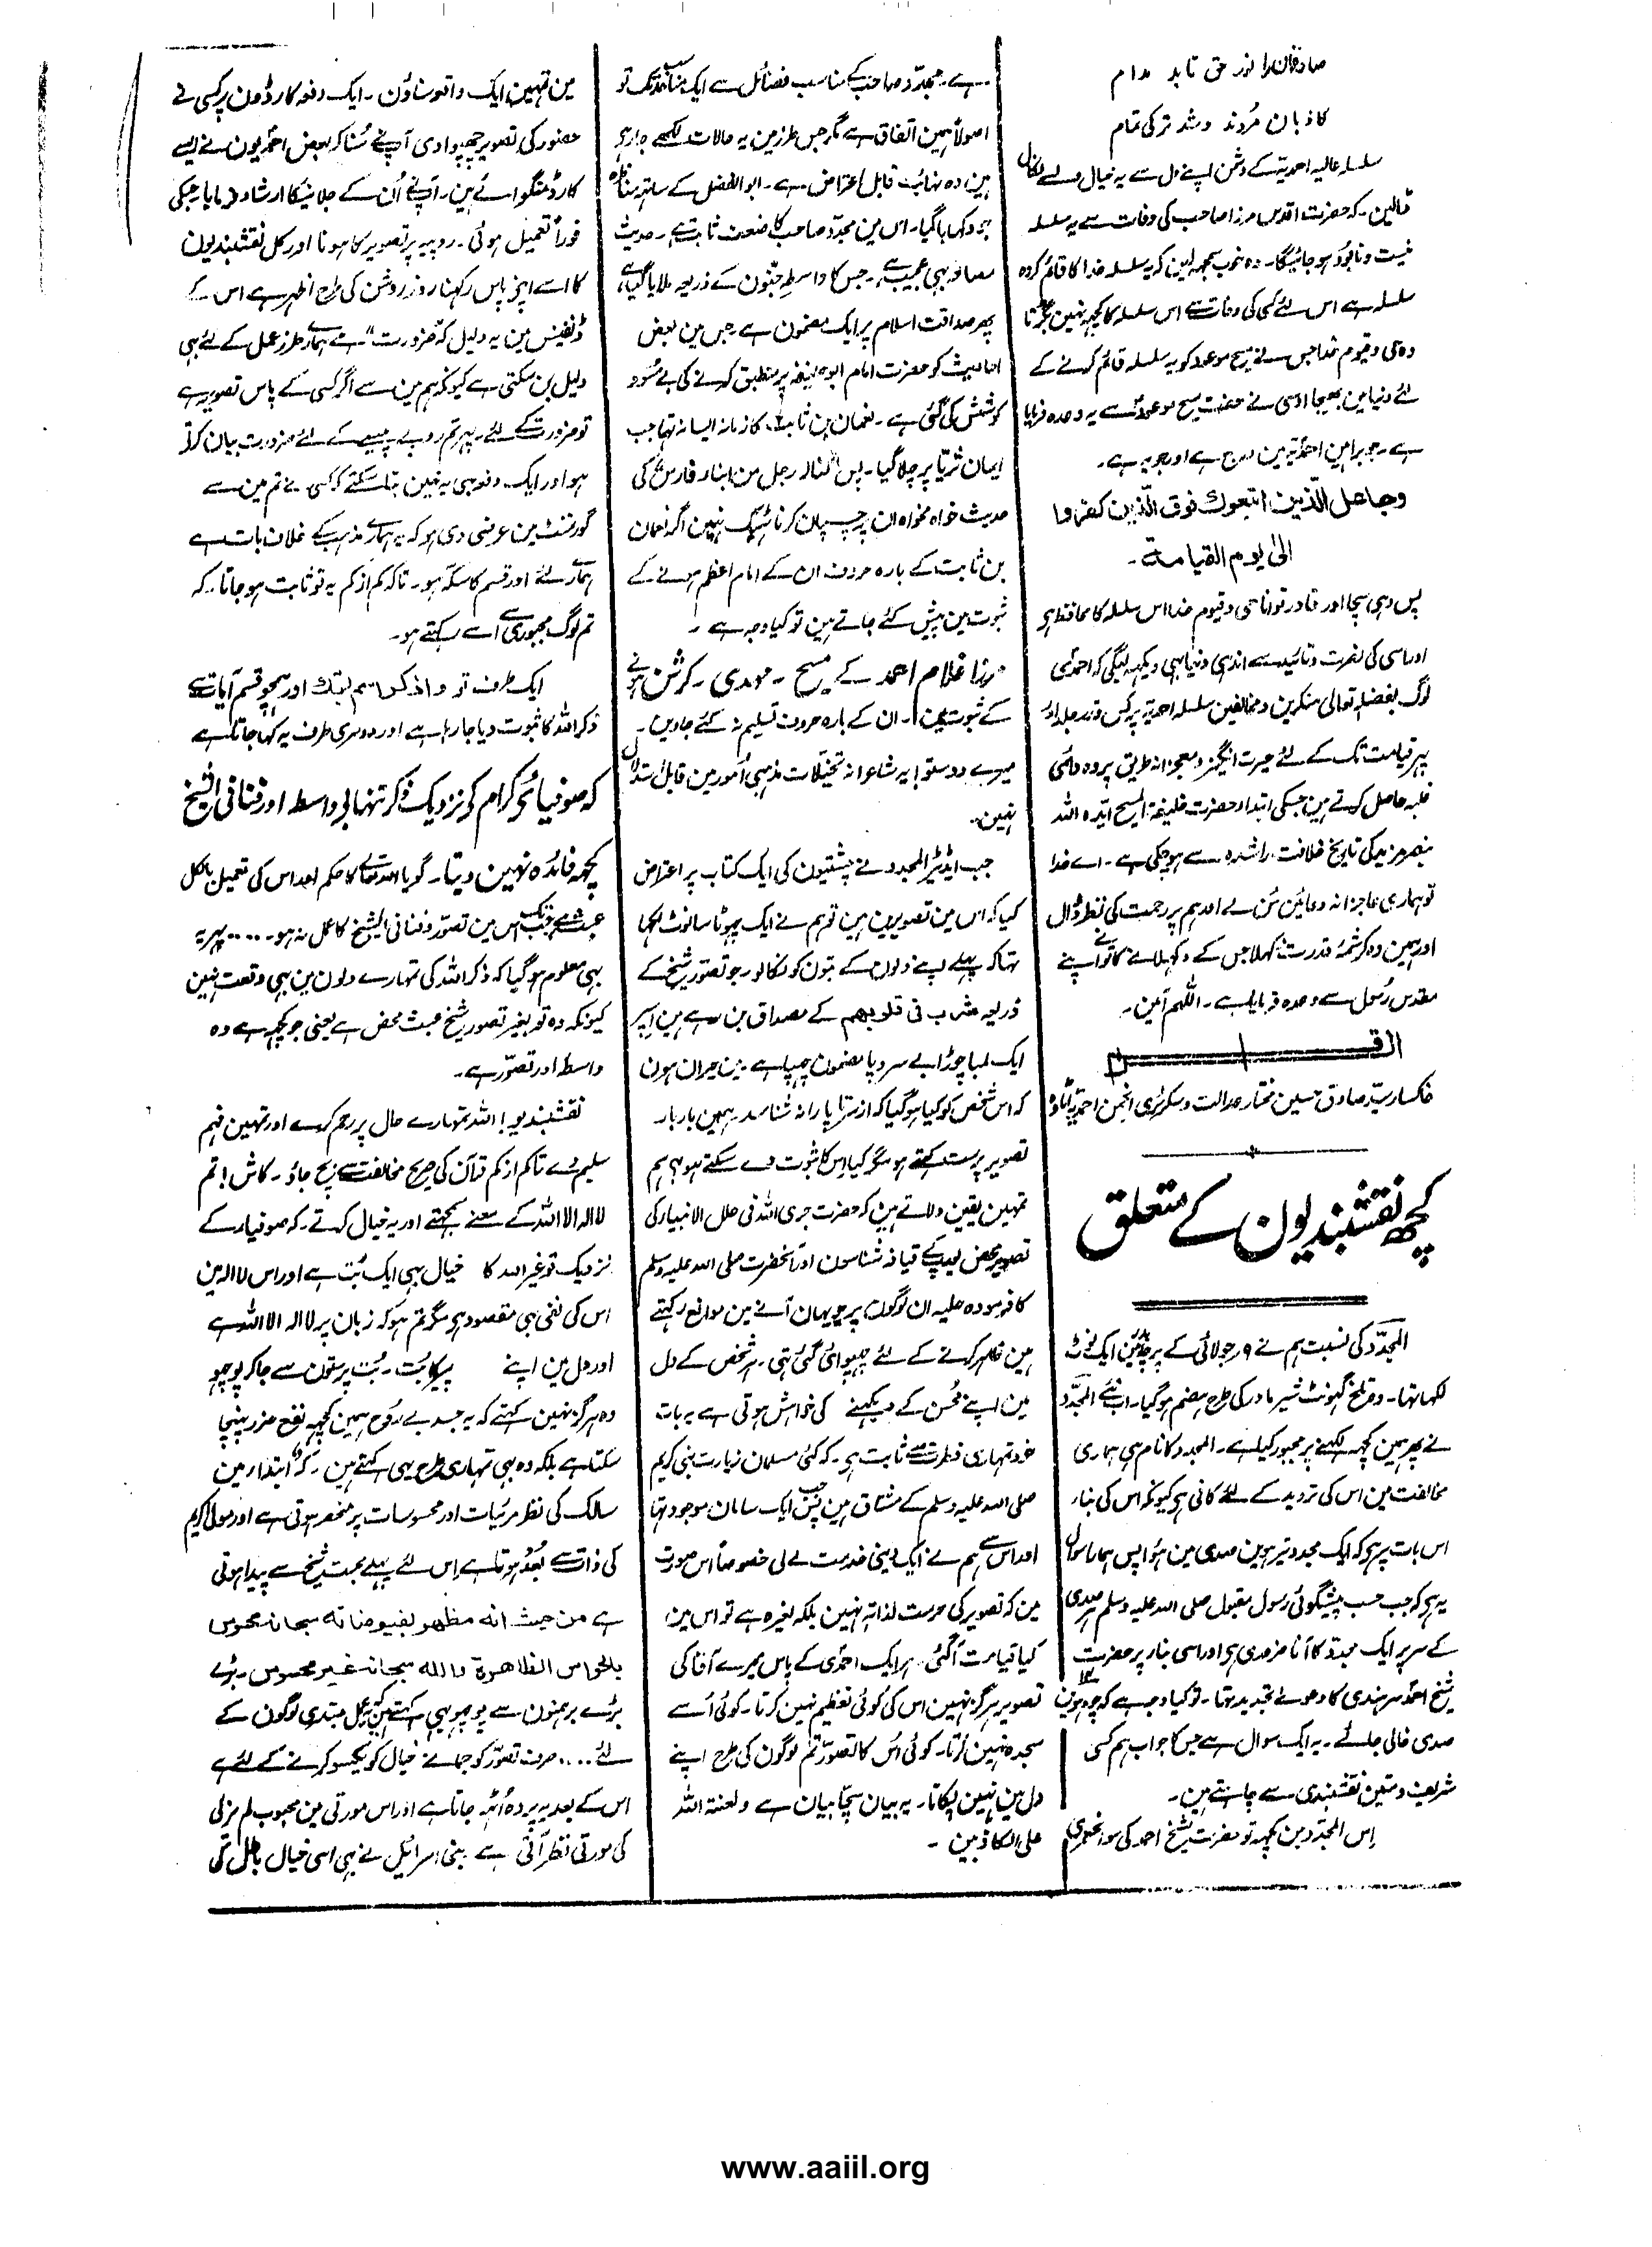 صادقان را نور حق تابد مدام
کاذبان مُردند و شد ترکی تمام
سلسلہ عالیہ احمدیہ کے دشمن اپنے دل سے یہ خیال
ڈالین ۔ کہ حضرت اقدس مرزا صاحب کی وفات سے یہ سلسلہ
نیست و نابُود ہو جائیگا ۔ وہ خوب سمجھ لین کہ یہ سلسلہ خدا کا قائم کردہ
سلسلہ ہے اس لئے کسی کی وفات سے اس سلسلہ کا کچھ نہین بگڑتا
وہ حی و قیوم خدا جس نے مسیح موعود کو یہ سلسلہ قائم کرنے کے
لئے دنیا مین بھیجا اوسی نے حضرت مسیح موعود سے یہ وعدہ فرمایا
ہے ۔ جو براہین احمدیہ مین درج ہے اور جو یہ ہے ۔
وجاعل الّذین اتبعوك فوق الّذین کفروا
الیٰ یوم القیامة ۔
پس وہی سچا اور قادر توانا حی و قیوم خدا اس سلسلہ کا محافظ ہے
اور اسی کی نصرت و تائید سے اندھی دنیا بھی دیکھ لیگی کہ احمدی
لوگ بفضلہ تعالیٰ منکرین و مخالفین سلسلہ احمدیہ پر کس قدر جلد اور
پھر قیامت تک کے لئے حیرت انگیز و معجزانہ طریق پر وہ دائمی
غلبہ حاصل کرتے ہین جسکی ابتداء حضرت خلیفة المسیح ایّدہ اللہ
بنصرہ کی تاریخ خلافت راشدہ سے ہو چکی ہے ۔ اے خدا
تو ہماری عاجزانہ دعائین سُن لے اور ہم پر رحمت کی نظر ڈال
اور ہمین وہ کرشمۂ قدرت دکھلا جس کے دکھلانے کا تو نے اپنے
مقدس رسُول سے وعدہ فرمایا ہے ۔ اللھم آمین ۔
خاکسار سیّد صادق حسین مختار عدالت و سکرٹری انجمن احمدیہ اٹاوہ
کچھ نقشبندیون کے متعلق
المجدّد کی نسبت ہم نے ۹ ر جولائی کے پرچہ بدر مین ایک نوٹ
لکھا تھا ۔ وہ تلخ گھونٹ شیر مادر کی طرح ہضم ہو گیا ۔ اب نئے المجدّد
نے پھر ہمین کچھ لکھنے پر مجبور کیا ہے ۔ المجدد کا نام ہی ہماری
مخالفت مین اس کی تردید کے لئے کافی ہے کیونکہ اس کی بناء
اس بات پر ہے کہ ایک مجدد تیرھوین صدی مین ہُوا پس ہمارا سوال
یہ ہے کہ جب حسب پیشگوئی رسول مقبول صلی اللہ علیہ وسلم ہر صدی
کے سر پر ایک مجدد کا آنا ضروری ہے اور اسی بناء پر حضرت
شیخ احمد سرہندی کا دعوےٰ تجدید تھا ۔ تو کیا وجہ ہے کہ چودھوین
صدی خالی جائے ۔ یہ ایک سوال ہے جس کا جواب ہم کسی
شریف و متین نقشبندی سے چاہتے ہین ۔
اِس المجدّد مین کچھ تو حضرت شیخ احمد کی سوانحعمری
ہے ۔ مجدّد صاحب کے مناسب فضائل سے ایک مناسب حد تک تو
اصولاً ہمین اتفاق ہے مگر جس طرز مین یہ حالات لکھے جا رہے
ہین وہ نہایت قابل اعتراض ہے ۔ ابوالفضل کے ساتھ مناظرہ
جو دکھایا گیا ۔ اس مین مجدّد صاحب کا ضعف ثابت ہے ۔ حدیث
مصافحہ بھی عجیب ہے ۔ جس کا واسطہ جنّون کے ذریعہ ملایا گیا ہے
پھر صداقت اسلام پر ایک مضمون ہے جس مین بعض
احادیث کو حضرت امام ابو حنیفہ پر منطبق کرنے کی بے سُود
کوشش کی گئی ہے ۔ نعمان بن ثابت کا زمانہ ایسا نہ تھا جب
ایمان ثریّا پر چلا گیا ۔ پس لنالہ رجل من ابناء فارس کی
حدیث خواہ مخواہ ان پر چسپان کرنا ٹھیک نہین اگر نعمان
بن ثابت کے بارہ حروف ان کے امام اعظم ہونے کے
ثبوت مین پیش کئے جاتے ہین تو کیا وجہ ہے ۔
مرزا غلام احمد کے مسیح ۔ مہدی ۔ کرشن ہونے
کے ثبوت مین ۔ ان کے بارہ حروف تسلیم نہ کئے جاوین ۔
میرے دوستو ! یہ شاعرانہ تخیّلات مذہبی اُمور مین قابل استدلال
نہین ۔
جب ایڈیٹر المجدد نے چشتیون کی ایک کتاب پر اعتراض
کیا کہ اس مین تصویرین ہین تو ہم نے ایک چھوٹا سا نوٹ لکھا
تھا کہ پہلے اپنے دلون کے بتون کو نکالو ۔ جو تصوّر شیخ کے
ذریعہ اشرب فی قلوبھم کے مصداق بن رہے ہین اسپر
ایک لمبا چوڑا بے سر و پا مضمون چھپا ہے ۔ مین حیران ہون
کہ اس شخص کو کیا ہو گیا کہ از سر تا پا را نہ شناسد ۔ ہمین بار بار
تصویر پرست کہتے ہو مگر کیا اِس کا ثبوت دے سکتے ہو ؟ ہم
تمہین یقین دلاتے ہین کہ حضرت جری اللہ فی حلل الانبیاء کی
تصویر محض یورپ کے قیافہ شناسون اور آنحضرت صلی اللہ علیہ وسلم
کا فرمودہ حلیہ ان لوگون پر جو یہان آنے مین موانع رکھتے
ہین ظاہر کرنے کے لئے چھپوائی گئی تھی ۔ ہر شخص کے دل
مین اپنے محُسن کے دیکھنے کی خواہش ہوتی ہے یہ بات
خود تمہاری فطرت سے ثابت ہے ۔ کہ کئی مسلمان زیارت نبی کریم
صلی اللہ علیہ وسلم کے مشتاق ہین پس جب ایک سامان موجود تھا
اور اس سے ہم نے ایک دینی خدمت لے لی خصوصاً اس صورت
مین کہ تصویر کی حرمت لذاتہ نہین بلکہ لغیرہ ہے تو اس مین
کیا قیامت آ گئی ۔ ہر ایک احمدی کے پاس میرے آقا کی
تصویر ہرگز نہین اس کی کوئی تعظیم نہین کرتا ۔ کوئی اُسے
سجدہ نہین کرتا ۔ کوئی اُس کا تصوّر تم لوگون کی طرح اپنے
دل مین نہین پکاتا ۔ یہ بیان سچّا بیان ہے ولعنة اللہ
علی الکاذبین ۔
مین تمہین ایک واقعہ سناؤن ۔ ایک دفعہ کارڈون پر کسی نے
حضور کی تصویر چھپوا دی آپ نے سُنا کہ بعض احمدیون نے ایسے
کارڈ منگوائے ہین ۔ آپ نے اُن کے جلانیکا ارشاد فرمایا ۔ جسکی
فوراً تعمیل ہوئی ۔ روپیہ پر تصویر کا ہونا اور کل نقشبندیون
کا اسے اپنے پاس رکھنا روز روشن کی طرح اظہر ہے اس کے
ڈیفینس مین یہ دلیل کہ "ضرورت" ہے ہمارے طرز عمل کے لئے بھی
دلیل بن سکتی ہے کیونکہ ہم مین سے اگر کسی کے پاس تصویر ہے
تو ضرورت کے لئے ۔ پھر تم روپے پیسے کے لئے ضرورت بیان کرتے
ہو اور ایک دفعہ بھی یہ نہین بتا سکتے کہ کسی نے تم مین سے
گورنمنٹ مین عرضی دی ہو کہ یہ ہمارے مذہب کے خلاف بات ہے
ہمارے لئے اور قسم کا سکّہ ہو ۔ تاکہ کم از کم یہ تو ثابت ہو جاتا ۔ کہ
تم لوگ مجبوری سے اسے رکھتے ہو ۔
ایک طرف تو واذکر اسم ربّك اور ہمچو قسم آیات سے
ذکر اللہ کا ثبوت دیا جا رہا ہے اور دوسری طرف یہ کہا جاتا ہے
کہ صوفیائے کرام کے نزدیک ذکر تنہا بے واسطہ اور فنا فی الشیخ
کچھ فائدہ نہین دیتا ۔ گویا اللہ تعالےٰ کا حکم اور اس کی تعمیل بالکل
عبث ہے جب تک اس مین تصوّر و فنا فی الشیخ کا عمل نہ ہو ۔ .... پھر یہ
بھی معلوم ہو گیا کہ ذکر اللہ کی تمہارے دلون مین بھی وقعت نہین
کیونکہ وہ تو بغیر تصور شیخ عبث محض ہے یعنی جو کچھ ہے وہ
واسطہ اور تصوّر ہے ۔
نقشبندیو ! اللہ تمہارے حال پر رحم کرے اور تمہین فہم
سلیم دے تاکہ کم از کم قرآن کی صریح مخالفت سے بچ جاؤ ۔ کاش ! تم
لا الہ الا اللہ کے معنے سمجھتے اور یہ خیال کرتے ۔ کہ صوفیاء کے
نزدیک تو غیر اللہ کا خیال بھی ایک بُت ہے اور اس لا الہ مین
اس کی نفی ہی مقصود ہے مگر تم ہو کہ زبان پر لا الہ الا اللہ ہے
اور دل مین اپنے پیر کا بُت ۔ بُت پرستون سے جا کر پوچھو
وہ ہرگز نہین کہتے کہ یہ جسد بے رُوح ہمین کچھ نفع ضرر پہنچا
سکتا ہے بلکہ وہ بھی تمہاری طرح یہی کہتے ہین ۔ کہ "ابتداء مین
سالک کی نظر مرئیات اور محسوسات پر منحصر ہوتی ہے اور مولیٰ کریم
کی ذات سے بُعد ہوتا ہے اِس لئے پہلے محبت شیخ سے پیدا ہوتی
ہے من حیث انه مظهر لفیوضاته سبحانه محسوس
بالحواس الظاهرة والله سبحانه غیر محسوس ۔ بڑے
بڑے برہمنون سے پوچھو یہی کہتے ہین کہ یہ عمل مبتدی لوگون کے
لئے .... صرف تصوّر کو جمانے خیال کو یکسو کرنے کے لئے ہے
اس کے بعد یہ پردہ اُٹھ جاتا ہے اور اس مورتی مین محبوب لم یزلی
کی مورتی نظر آتی ہے بنی اسرائیل نے بھی اسی خیال باطل کی
www.aaiil.org